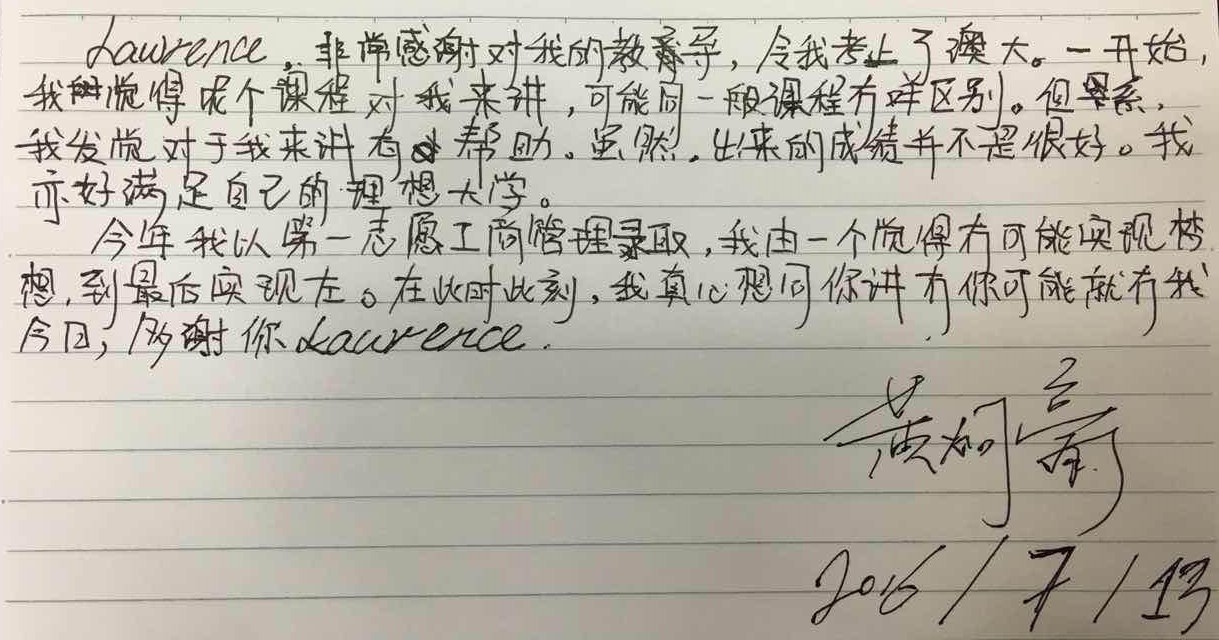 Lawrence，非常感谢对我的教导，令我考上了澳大。一开始，
我觉得呢个课程对我来讲，可能同一般课程冇咩区别。但系，
我发觉对于我来讲有帮助。虽然，出来的成绩并不是很好。我
亦好满足自己的理想大学。
今年我以第一志愿工商管理录取，我由一个觉得冇可能实现梦
想，到最后实现左。在此时此刻，我真心想同你讲冇你可能就冇我
今日，多谢你Lawrence.
黄
2016/7/13